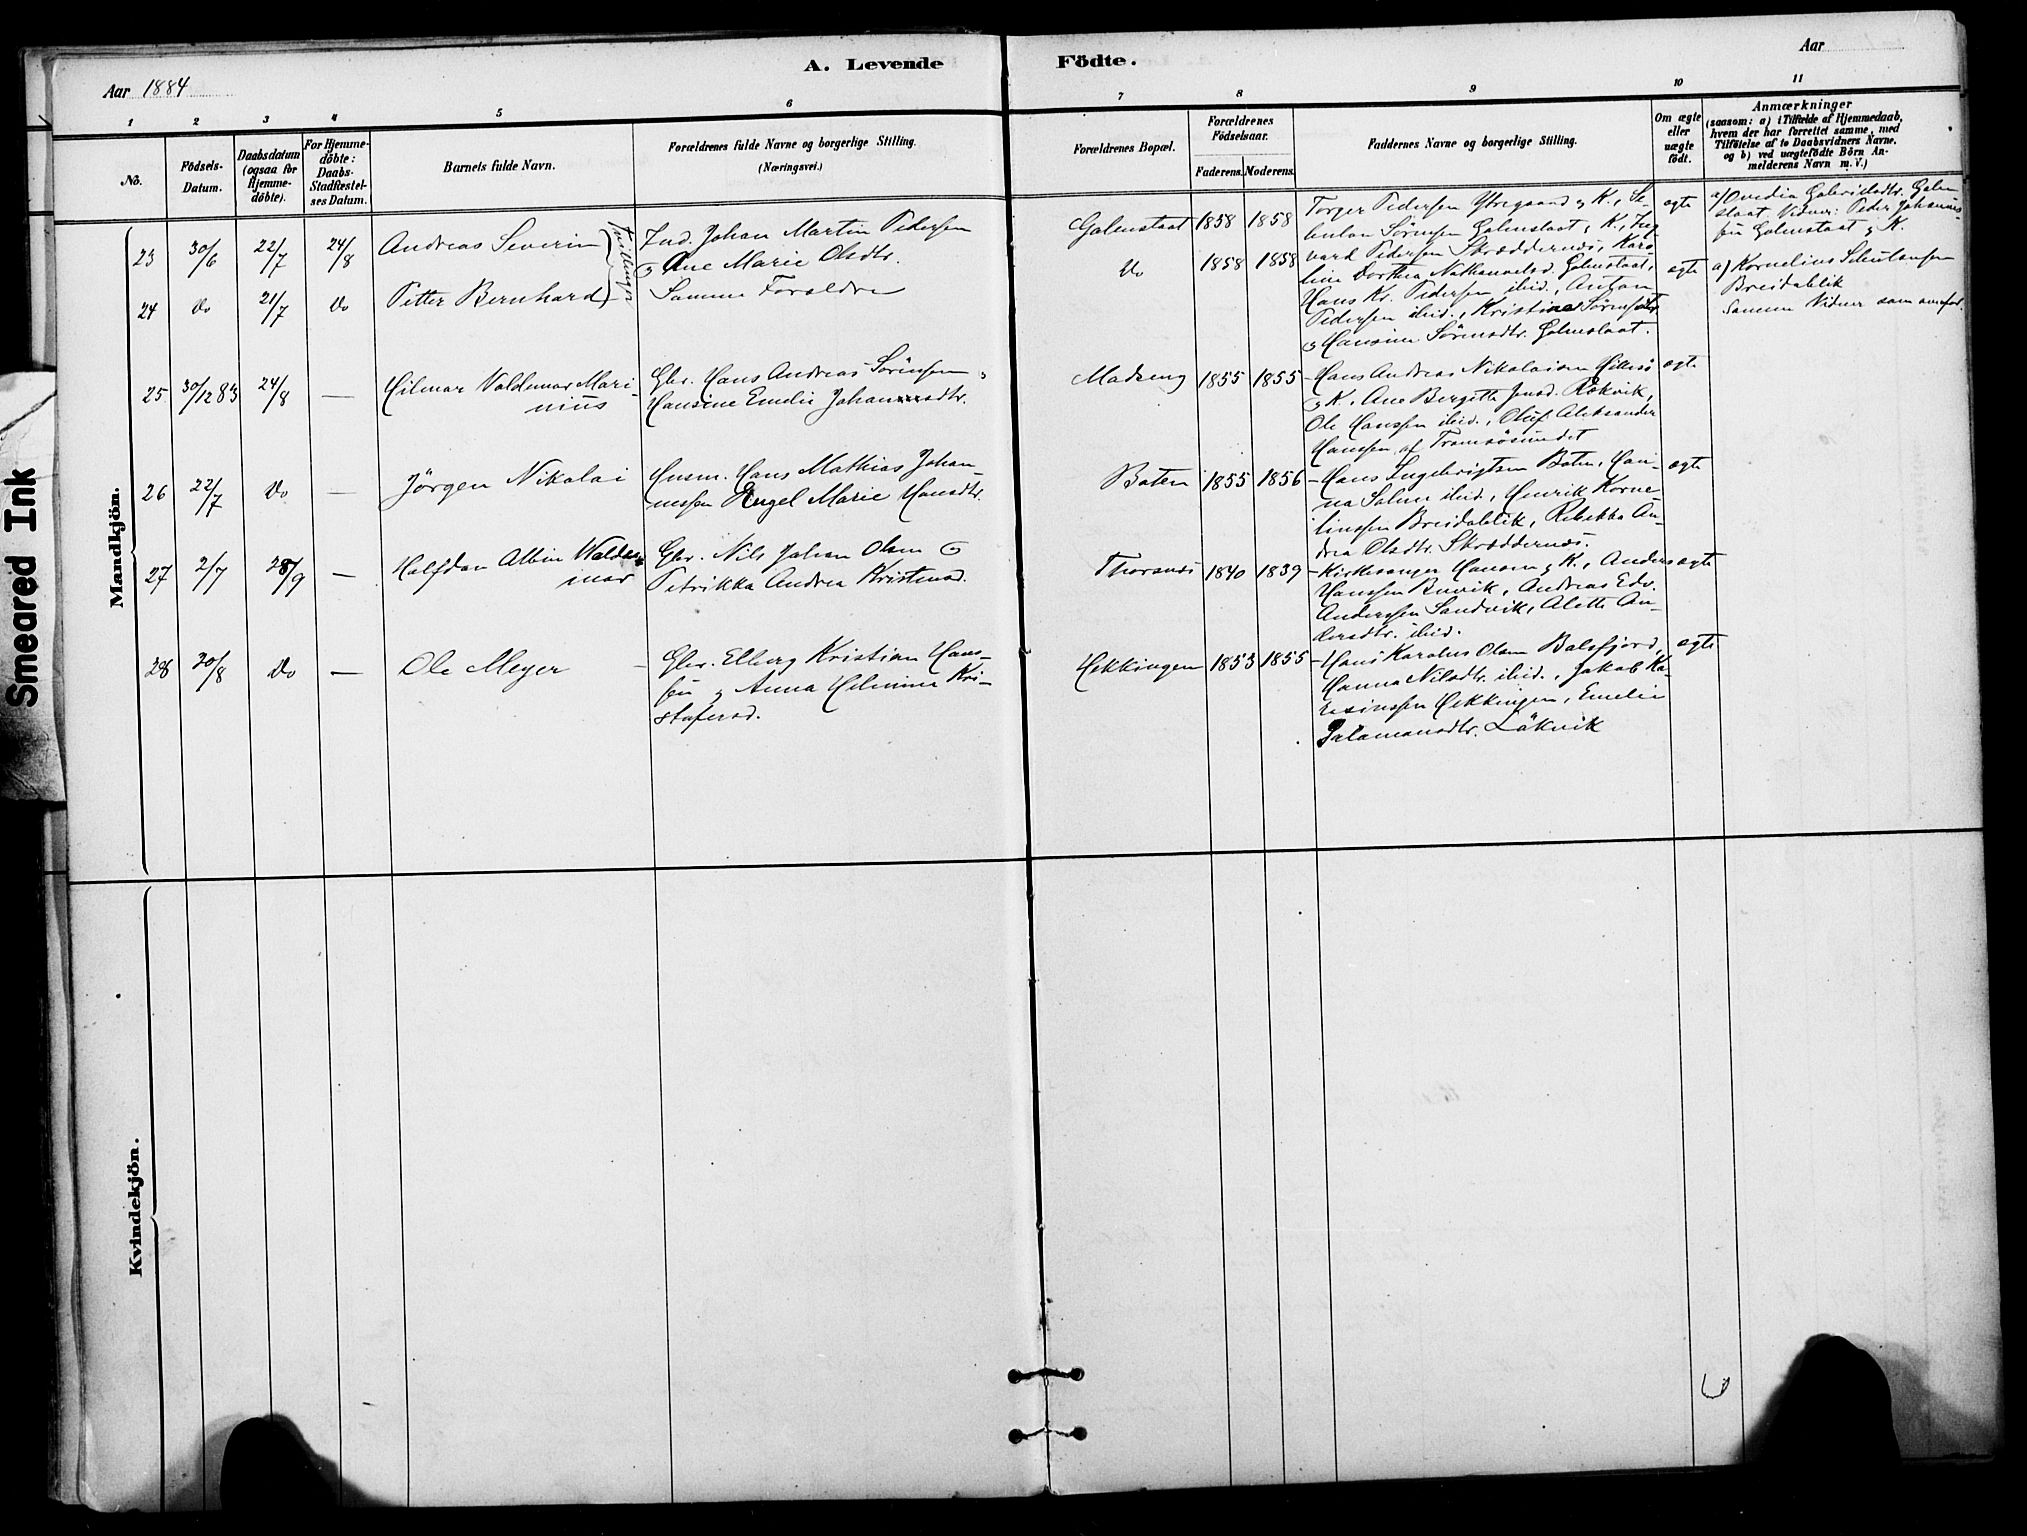 Smeared Ink
Aar 1884
A. Levende
Födte.
Aar
1 2 3 4 5 6 7 8 9 10 11
No.
Födsels-
Datum.
Daabsdatum
(ogsaa for
Hjemme-
döbte).
For Hjemme-
döbte:
Daabs-
Stadfæstel-
ses Datum.
Barnets fulde Navn.
Forældrenes fulde Navne og borgerlige Stilling.
(Næringsvei.)
Forældrenes Bopæl.
Forældrenes
Födselsaar.
Faderens. Moderens.
Faddernes Navne og borgerlige Stilling.
Om ægte
eller
uægte
født.
Anmærkninger
(saasom: a) i Tilfælde af Hjemmedaab,
hvem der har forrettet samme, med
Tilföielse af to Daabsvidners Navne,
og b) ved uægtefödte Börn An-
melderens Navn m. V.)
Mandkjön.
23 30/6 22/7 24/8 Andreas Severin
Tvillinger
Ind. Johan Martin Pedersen
og Ane Marie Olsdtr.
Golmstaat 1858 1858
Torger Pedersen Ytregaard og K., Se-
bulon Sörensen Golmstaat, K., Ing-
vard Pedersen Skræddernæs, Karo
line Dorthea Nathanaelsd. Golmstaat,
Hans Kr. Pedersen ibid., Anton
Pedersen ibid., Kristine Sörensdtr.
og Hansine Sörensdtr. Golmstaat.
ægte
a) Ovedia Gabrielsdtr. Golm
staat Vidner: Peder Johannes
sen Golmstaat og K.
24 Do 21/7 Do Petter Bernhard
Samme Foreldre
Do 1858 1858
ægte
a) Kornelius Schulausen
Breidablik
Samme Vidner som ovenfor.
25 30/12 83 24/8 — Hilmar Valdemar Mari-
nius
Gbr. Hans Andreas Sörensen og
Hansine Emelie Johannesdtr.
Madseng 1855 1855
Hans Andreas Nikolaisen Hillesö
og K. Ane Bergitte Jensd. Rökvik,
Ole Hanssen ibid., Oluf Aleksander
Hanssen af Tromsösundet
ægte
26 22/7 Do — Jörgen Nikolai
Husm. Hans Mathias Johan-
nessen Engel Marie Hansdtr.
Boten 1855 1856
Hans Ingebrigtsen Boten, Han-
na Salmr ibid., Henrik Korne-
liussen Breidablik, Rebekka An-
drea Olsdtr. Skræddernæs.
ægte
27 2/7 28/9 — Halfdan Albin Walde-
mar
Gbr. Nils Johan Olsen og
Petrikka Andrea Kristensd.
Thorsnæs 1840 1839
Kirkesanger Hansen og K., Anders
Hanssen Buvik, Andreas Edv.
Anderssen Sandvik, Alette An-
dersdtr. ibid.
ægte
28 30/8 Do — Ole Meyer
Gbr. Elberg Kristian Hans-
sen og Anna Helmine Kri-
stofersd.
Hekkingen 1853 1855
Hans Karolus Olsen Balsfjord,
Hanna Nilsdtr. ibid., Jakob Ka-
resiussen Hekkingen, Emelie
Salamonsdtr. Läkvik
ægte
Kvindekjön.